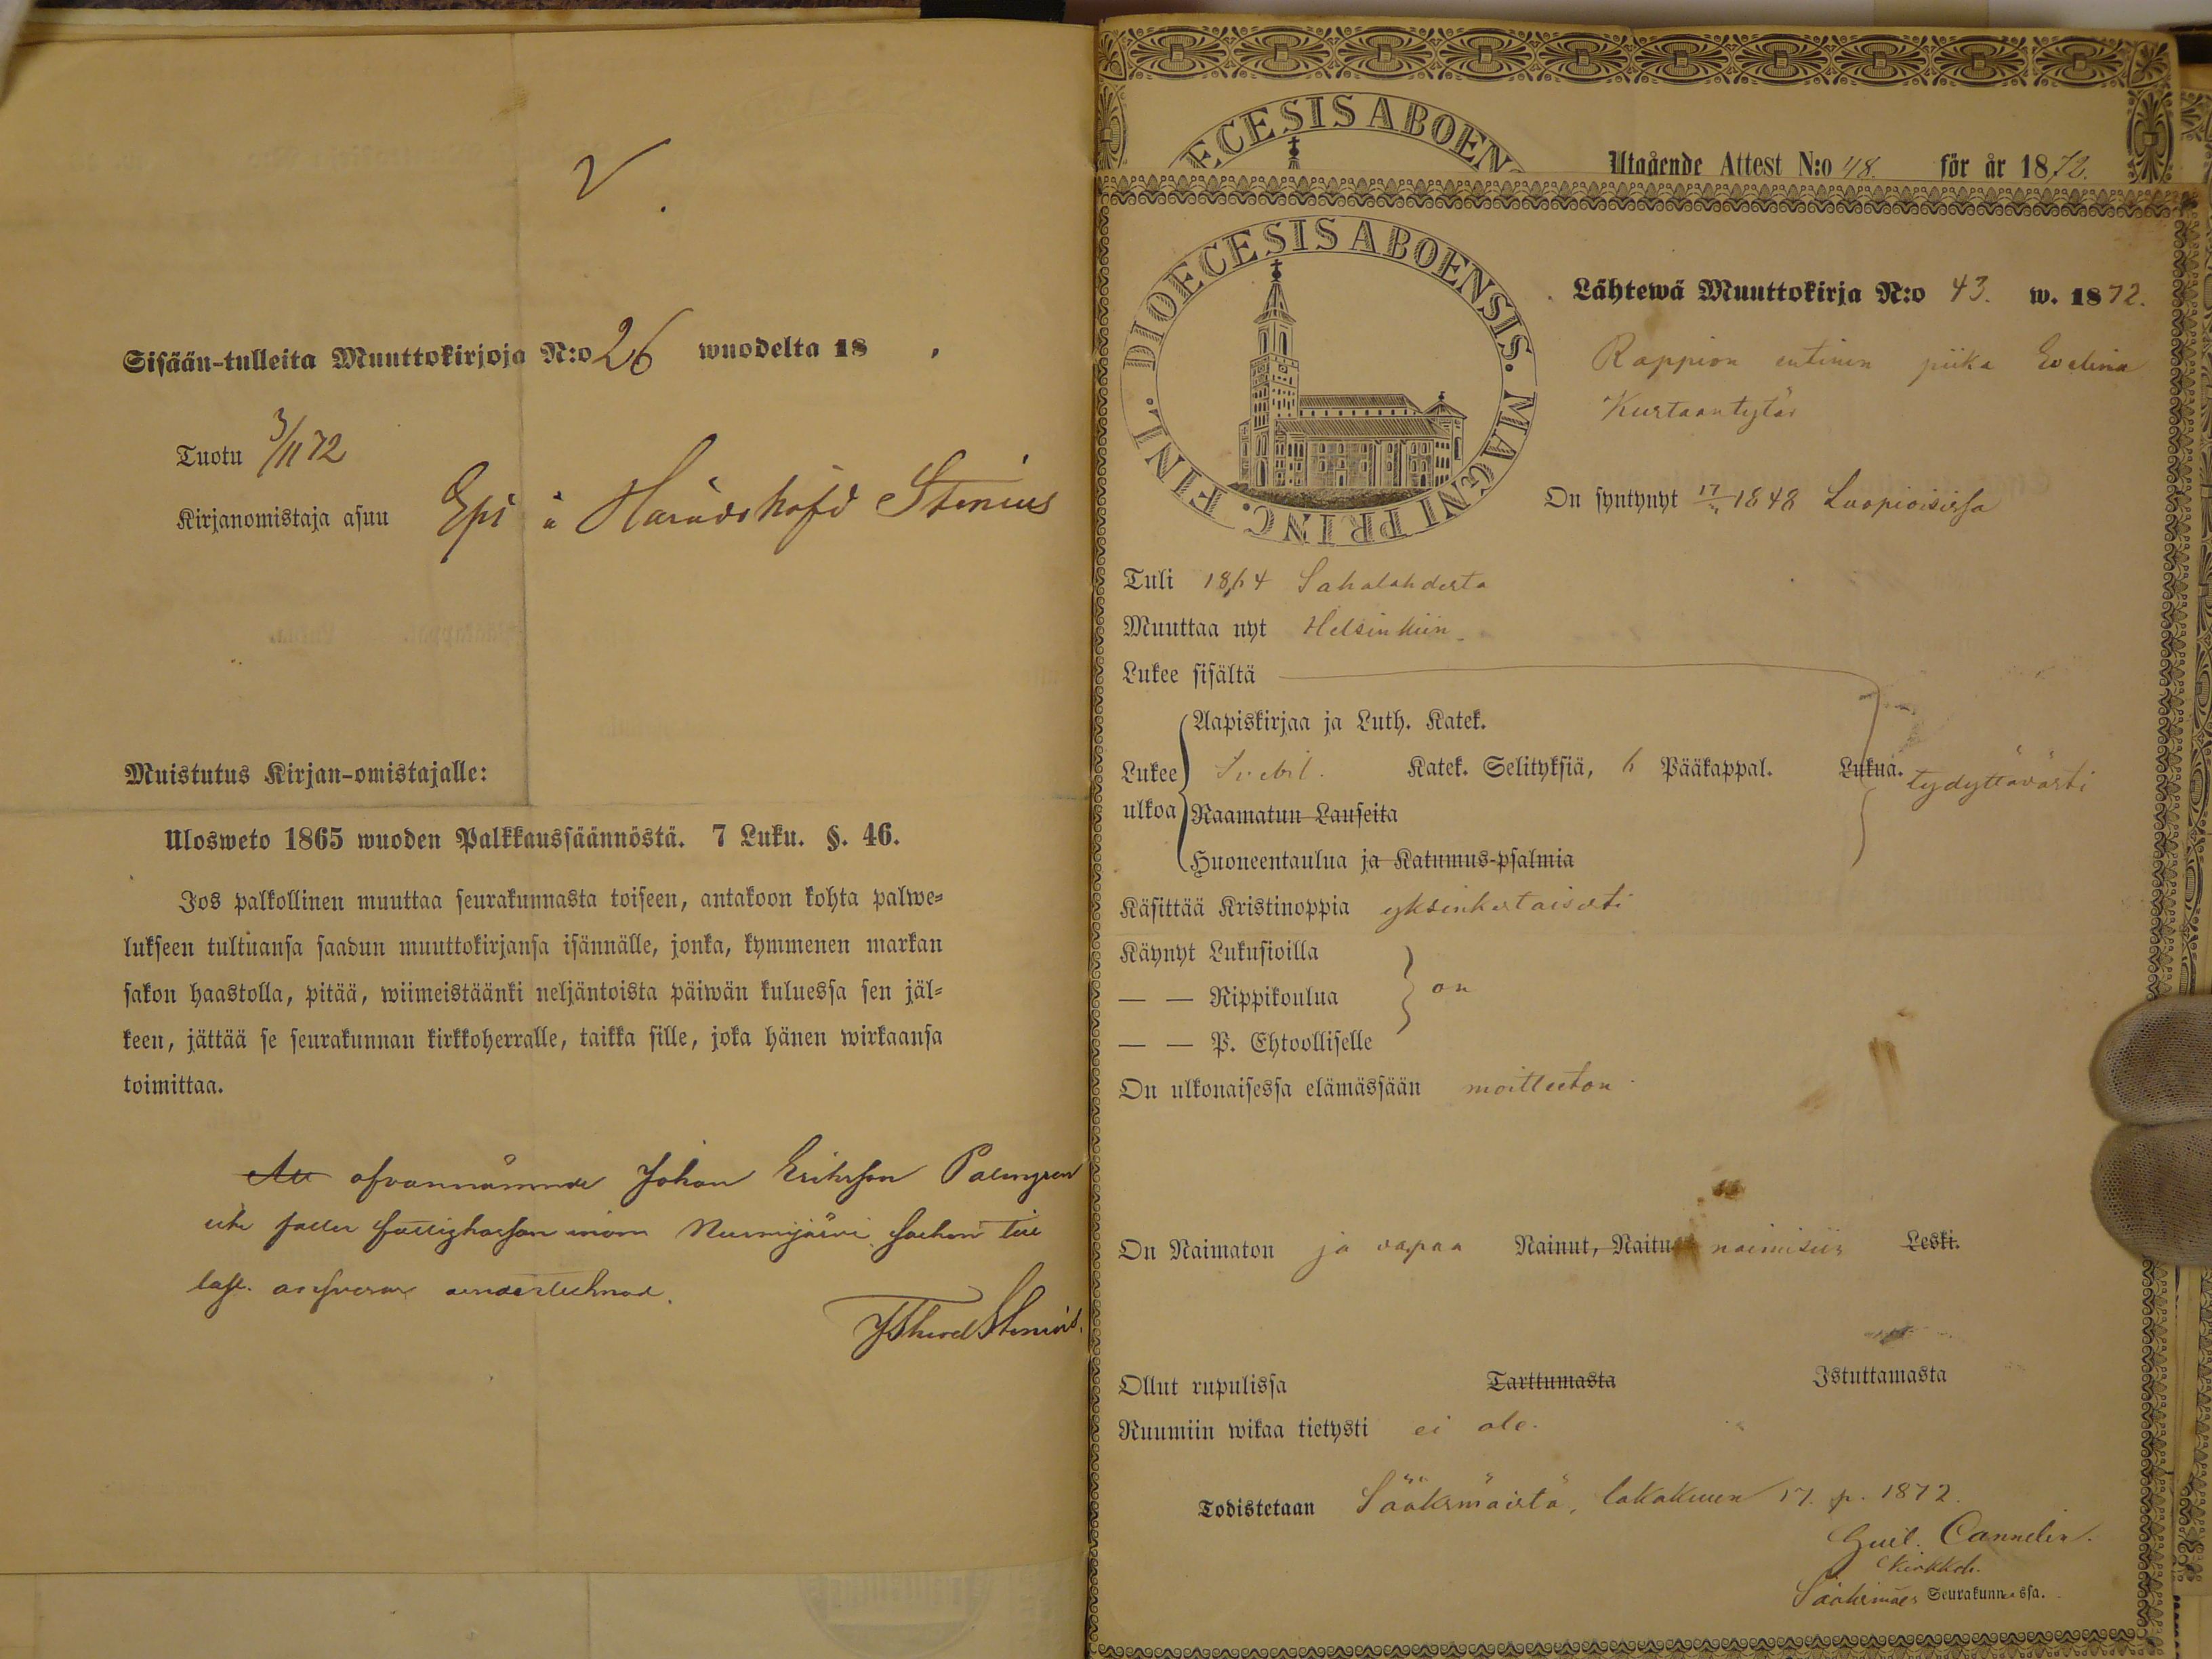 V.
Sisään-tulleita Muuttokirjoja N:o 26 wuodelta 18 .
Tuotu 3/11 72
Kirjanomistaja asuu Epi å Häradshöfd Stenius
Muistutus Kirjan-omistajalle:
Ulosweto 1865 wuoden Palkkaussäännöstä. 7 Luku. §. 46.
Jos palkollinen muuttaa seurakunnasta toiseen, antakoon kohta palwe=
lukseen tultuansa saadun muuttokirjansa isännälle, jonka, kymmenen markan
sakon haastolla, pitää, wiimeistäänki neljäntoista päiwän kuluessa sen jäl=
keen, jättää se seurakunnan kirkkoherralle, taikka sille, joka hänen wirkaansa
toimittaa.
Att ofvannämnde Johan Eriksson Palmgren
icke faller inom Nurmijärvi Socken till
last. ansvarar undertecknad.
Stenius.
ECESIS ABOEN
Utgående Attest N:o 48. för år 1872.
DIOECESIS ABOENSIS. MAGNI PRINC. FINL.
Lähtewä Muuttokirja N:o 43. w. 1872.
Rappion entinen piika Evelina
Kustaantytär
On syntynyt 17/ 1848 Luopioisissa
Tuli 1864 Sahalahdesta
Muuttaa nyt Helsinkiin
Lukee sisältä
Aapiskirjaa ja Luth. Katek.
Lukee ulkoa Svebil. Katek. Selityksiä, 6 Pääkappal. Lukua. tydyttävästi
Raamatun Lauseita
Huoneentaulua ja Katumus-psalmia
Käsittää Kristinoppia yksinkertaisesti
Käynyt Lukusioilla
— — Rippikoulua on
— — P. Ehtoolliselle
On ulkonaisessa elämässään moitteeton
On Naimaton ja vapaa Nainut, Naitu naimisiin Leski.
Ollut rupulissa Tarttumasta Istuttamasta
Ruumiin wikaa tietysti ei ole.
Todistetaan Sääksmäistä, lokakuun 17. p. 1872.
Guil. Cannelin.
Kirkkoh.
Sääksmäen Seurakunnassa.